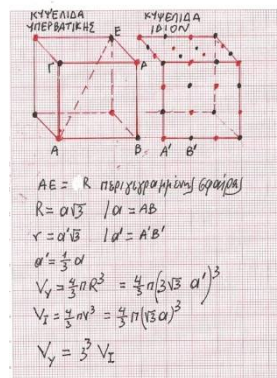 ΚΥΨΕΛΙΔΑ
ΥΠΕΡΒΑΤΙΚΗΣ
ΚΥΨΕΛΙΔΑ
ΙΔΙΟΝ
Ε
Γ
Α
Β
Α'
Β'
ΑΕ = R περιγεγραμμένης σφαίρας
R = a√3 / a = AB
r = a'√3 / a' = A'B'
a' = 1/3 a
Vγ = 4/3 π R³ = 4/3 π (3√3 a')³
VI = 4/3 π r³ = 4/3 π (√3 a)³
Vγ = 3³ VI